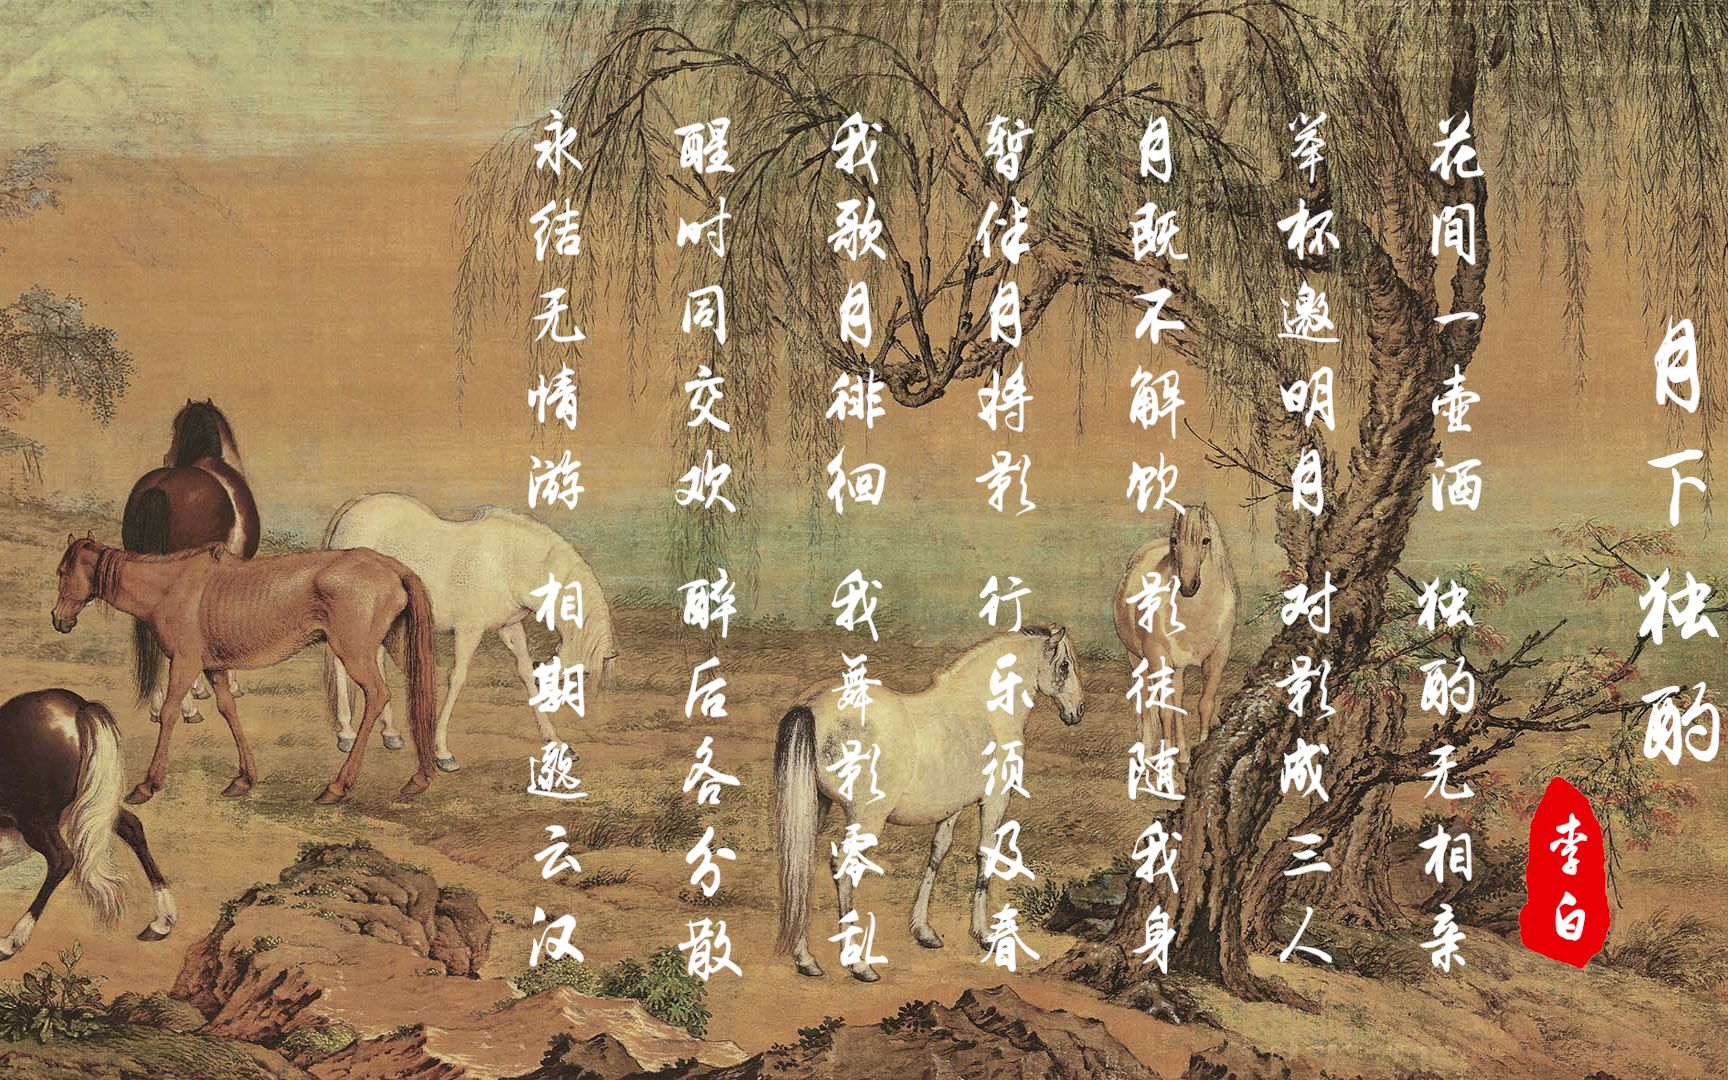 月下独酌
李白
花间一壶酒 独酌无相亲
举杯邀明月 对影成三人
月既不解饮 影徒随我身
暂伴月将影 行乐须及春
我歌月徘徊 我舞影零乱
醒时同交欢 醉后各分散
永结无情游 相期邈云汉